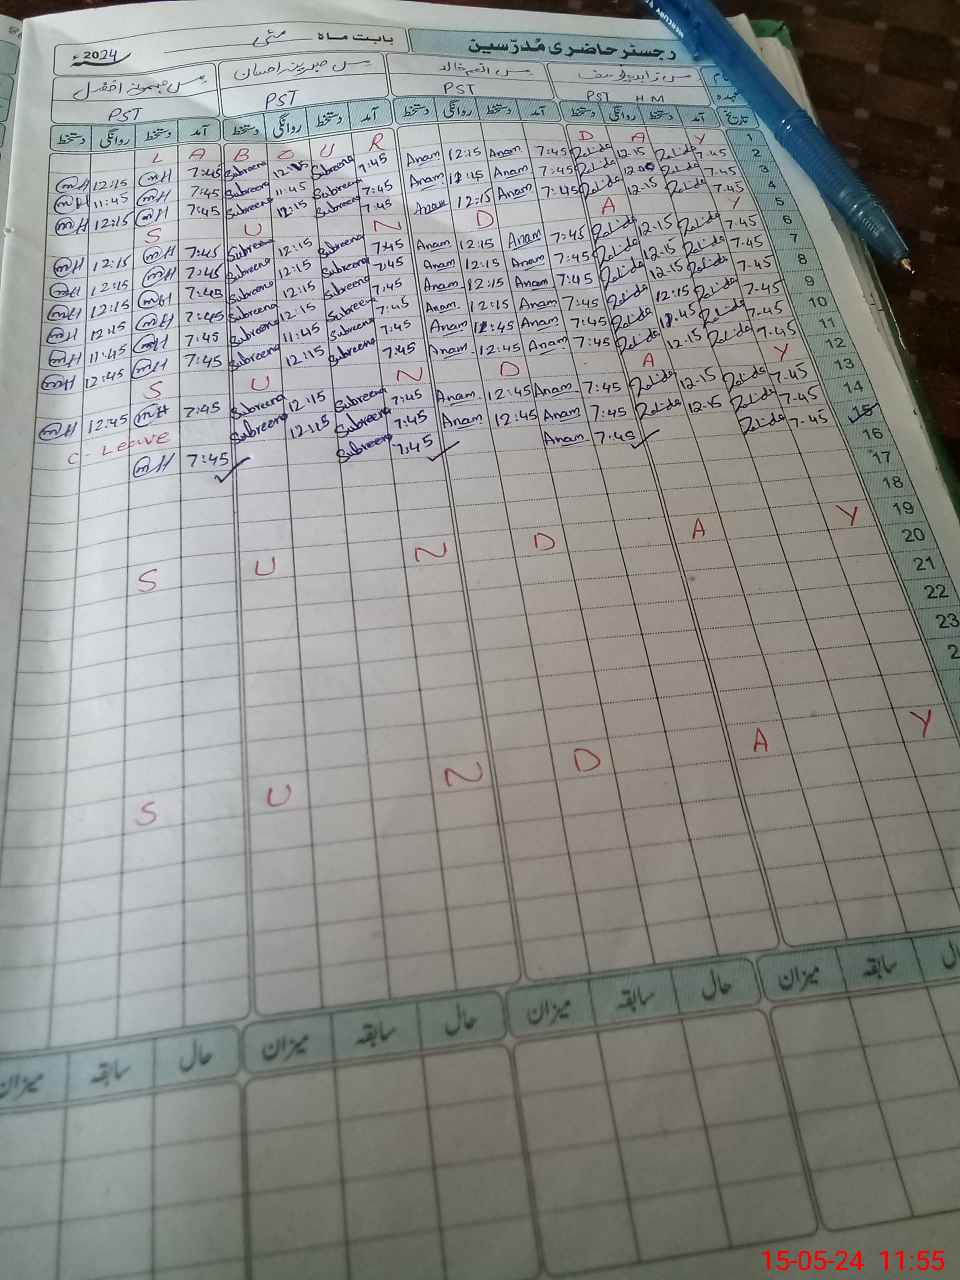 رجسٹر حاضری مدرسین بابت ماہ مئی 2024ء
مس انعم خالد مس سبرینہ احسان
PST HM PST PST PST
تاریخ آمد دستخط روانگی دستخط آمد دستخط روانگی دستخط آمد دستخط روانگی دستخط آمد دستخط روانگی دستخط
L A B O U R D A Y 1
MH 12:15 MH 7:45 Subreena 12:15 Subreena 7:45 Anam 12:15 Anam 7:45 12:15 7.45 2
MH 11:45 MH 7:45 Subreena 11:45 Subreena 7:45 Anam 12:15 Anam 7:45 7.45 3
MH 12:15 MH 7:45 Subreena 12:15 Subreena 7:45 Anam 12:15 Anam 7:45 12:15 7.45 4
S U N D A Y 5
MH 12:15 MH 7:45 Subreena 12:15 Subreena 7:45 Anam 12:15 Anam 7:45 12:15 7.45 6
MH 12:15 MH 7:45 Subreena 12:15 Subreena 7:45 Anam 12:15 Anam 7:45 12:15 7.45 7
MH 12:15 MH 7:45 Subreena 12:15 Subreena 7:45 Anam 12:15 Anam 7:45 12:15 7.45 8
MH 12:15 MH 7:45 Subreena 12:15 Subreena 7:45 Anam 12:15 Anam 7:45 12:15 7.45 9
MH 11:45 MH 7:45 Subreena 11:45 Subreena 7:45 Anam 12:45 Anam 7:45 12.45 7.45 10
MH 12:45 MH 7:45 Subreena 12:15 Subreena 7:45 Anam 12:45 Anam 7:45 12.15 7.45 11
S U N D A Y 12
MH 12:45 MH 7:45 Subreena 12:15 Subreena 7:45 Anam 12:45 Anam 7:45 12-15 7.45 13
C-Leave Subreena 12:15 Subreena 7:45 Anam 12:45 Anam 7:45 12.15 7.45 14
MH 7:45 Subreena 7:45 Anam 7:45 7.45 15
16
17
18
S U N D A Y 19
20
21
22
23
2
S U N D A Y
حال سابقہ میزان حال سابقہ میزان حال سابقہ میزان حال سابقہ میزان
15-05-24 11:55